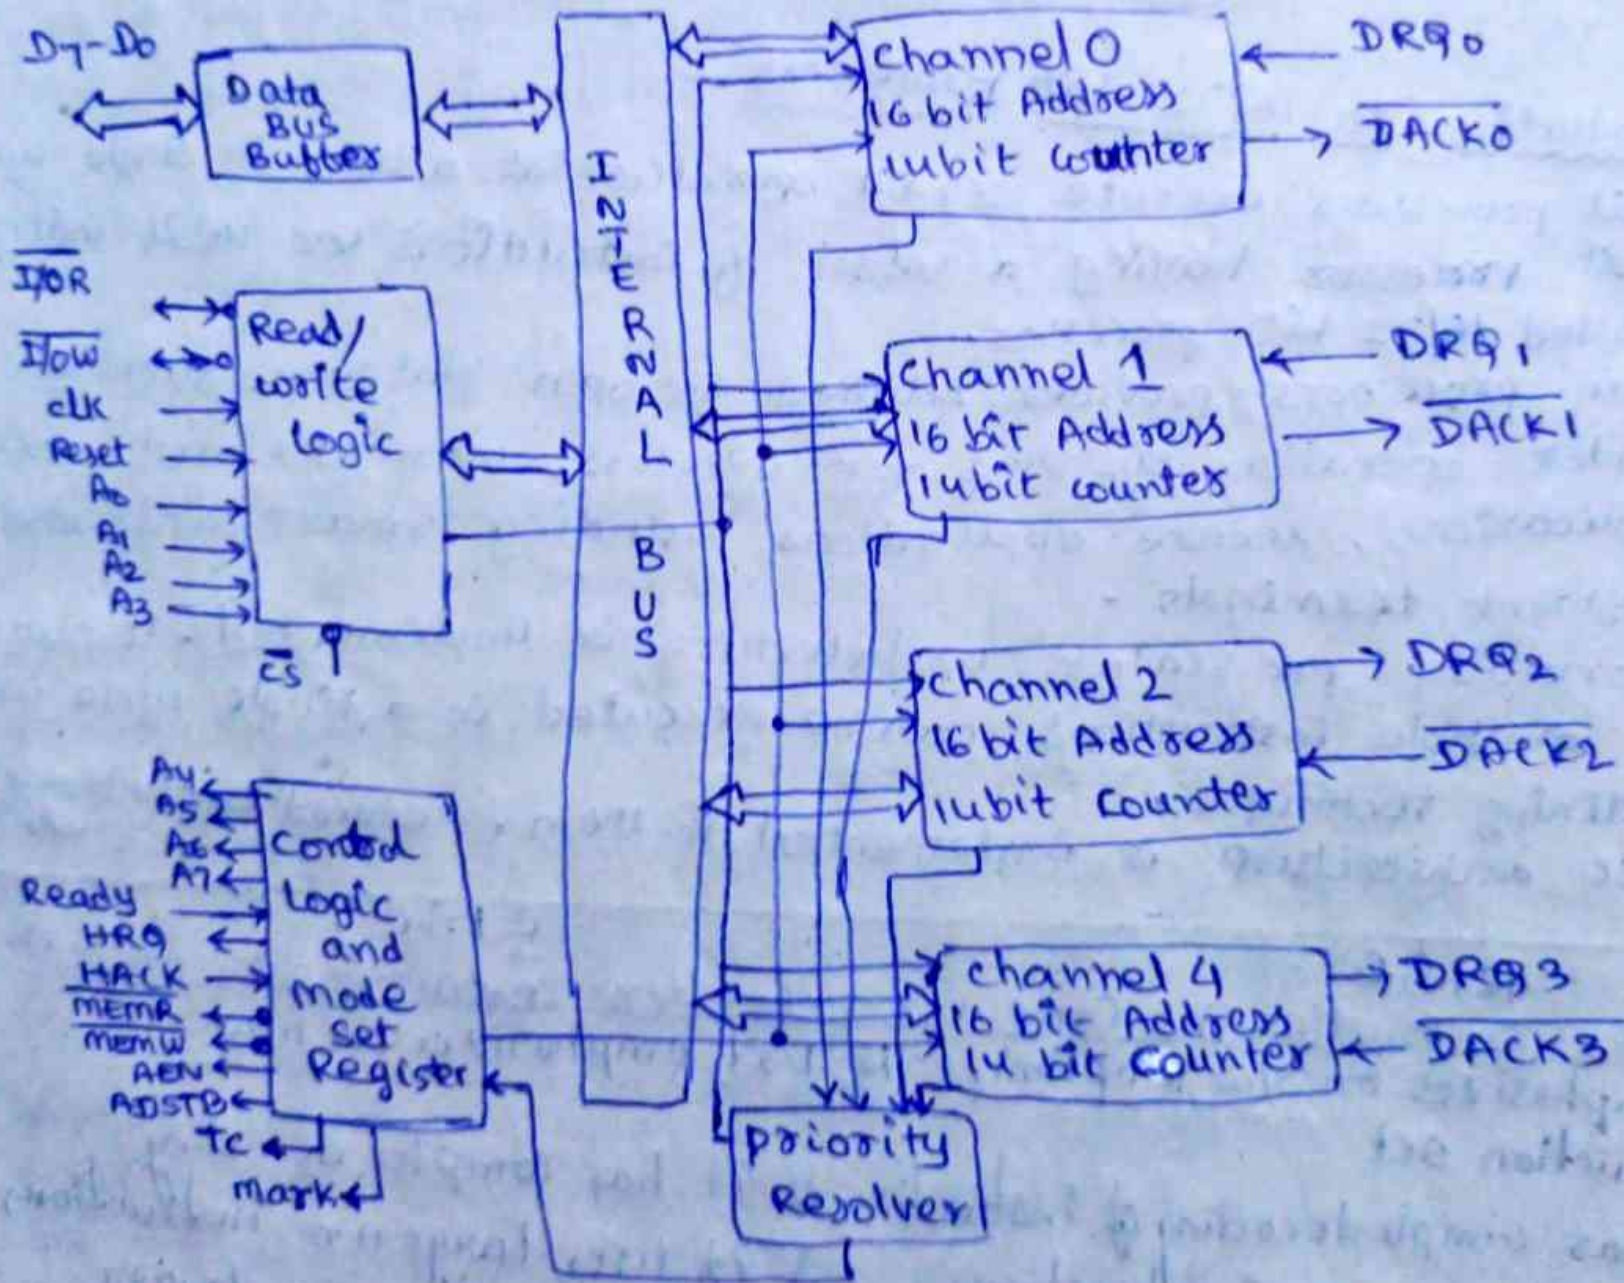 D7-D0
Data
Bus
Buffer
I/OR
I/OW
CLK
Reset
A0
A1
A2
A3
Read/
write
Logic
CS
A4
A5
A6
A7
Ready
HRQ
HACK
MEMR
MEMW
AEN
ADSTB
TC
Mark
Control
Logic
and
Mode
Set
Register
INTERNAL
BUS
Channel 0
16 bit Address
14bit counter
DRQ0
DACK0
Channel 1
16 bit Address
14bit counter
DRQ1
DACK1
Channel 2
16 bit Address
14bit counter
DRQ2
DACK2
Channel 4
16 bit Address
14 bit Counter
DRQ3
DACK3
Priority
Resolver